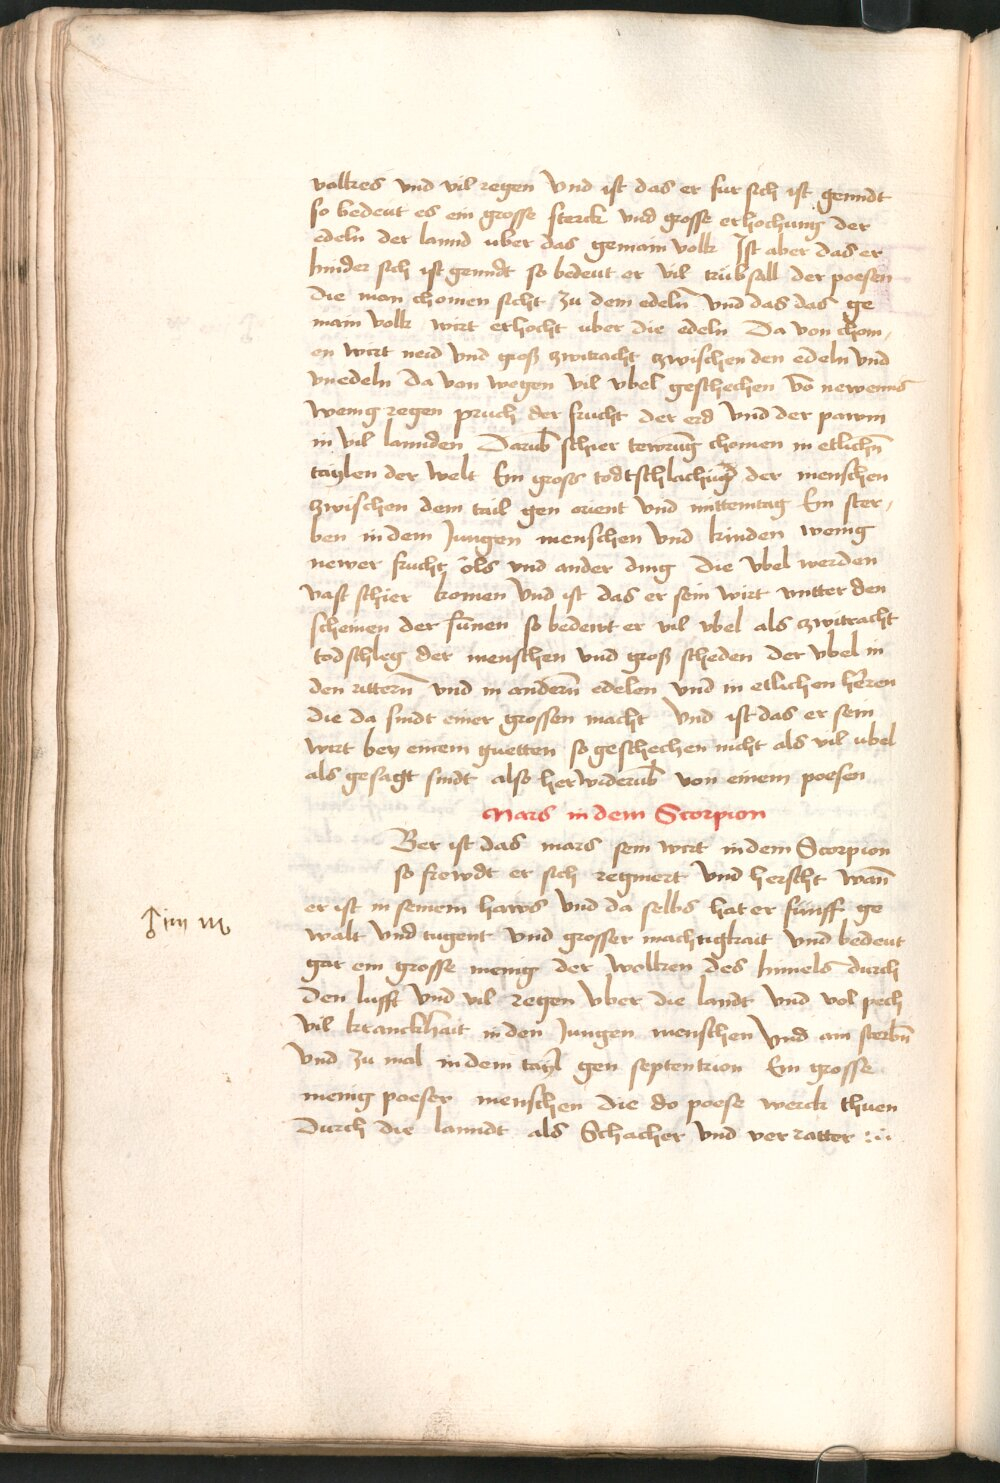 volkes vnd vil regen Vnd ist das er fur sich ist genndt
so bedeut es ein grosse sterck vnd grosse erhochung der
edeln der lannd uber das gemain volk Ist aber das er
hinder sich ist genndt so bedeut er vil trubsall der poesen
die man chomen sicht zu dem edeln vnd das das ge
main volk wirt erhocht uber die edeln Da von chom
en wirt neid vnd groß zwitracht zwischen den edeln vnd
vnedeln Da von wegen vil vbel geschechen vo newenns
wenig regen pruch der frucht der erd vnd der pawm
in vil lannden Darub schier tewrung chomen in etlichn
taylen der welt Ein gross todtschlachung der menschen
zwischen dem tail gen orient vnd mittemtag Ein ster
ben in dem Jungen menschen vnd kinden wenig
newer frucht öls vnd ander ding Die vbel werden
vast schier komen Vnd ist das er sein wirt vntter den
scheinen der sunen so bedewt er vil vbel als zwitracht
todschleg der menschen vnd groß scheden der vbel in
den rittern vnd in andern edelen vnd in etlichen heren
die da sindt einer grossen macht Vnd ist das er sein
wirt bey einem guetten so geschechen nicht als vil ubel
als gesagt sindt also herwiderub von einem poesen
Mars in dem Scorpion
Ber ist das mars sein wirt in dem Scorpion
so frewdt er sich regniert vnd herscht wann
er ist in seinem haws vnd da selbs hat er funff ge
walt vnd tugent vnd grosser machtigkait vnd bedeut
gar ein grosse menig der wolken des himels durch
den lufft vnd vil regen vber die landt vnd vol pech
vil kranckhait in den Jungen menschen vnd ain sterbn
vnd zu mal in dem tayl gen septentrion Ein grosse
menig poeser menschen die do poese werck thuen
Durch die lanndt als Schacher vnd verratter
♂ iiij ♏